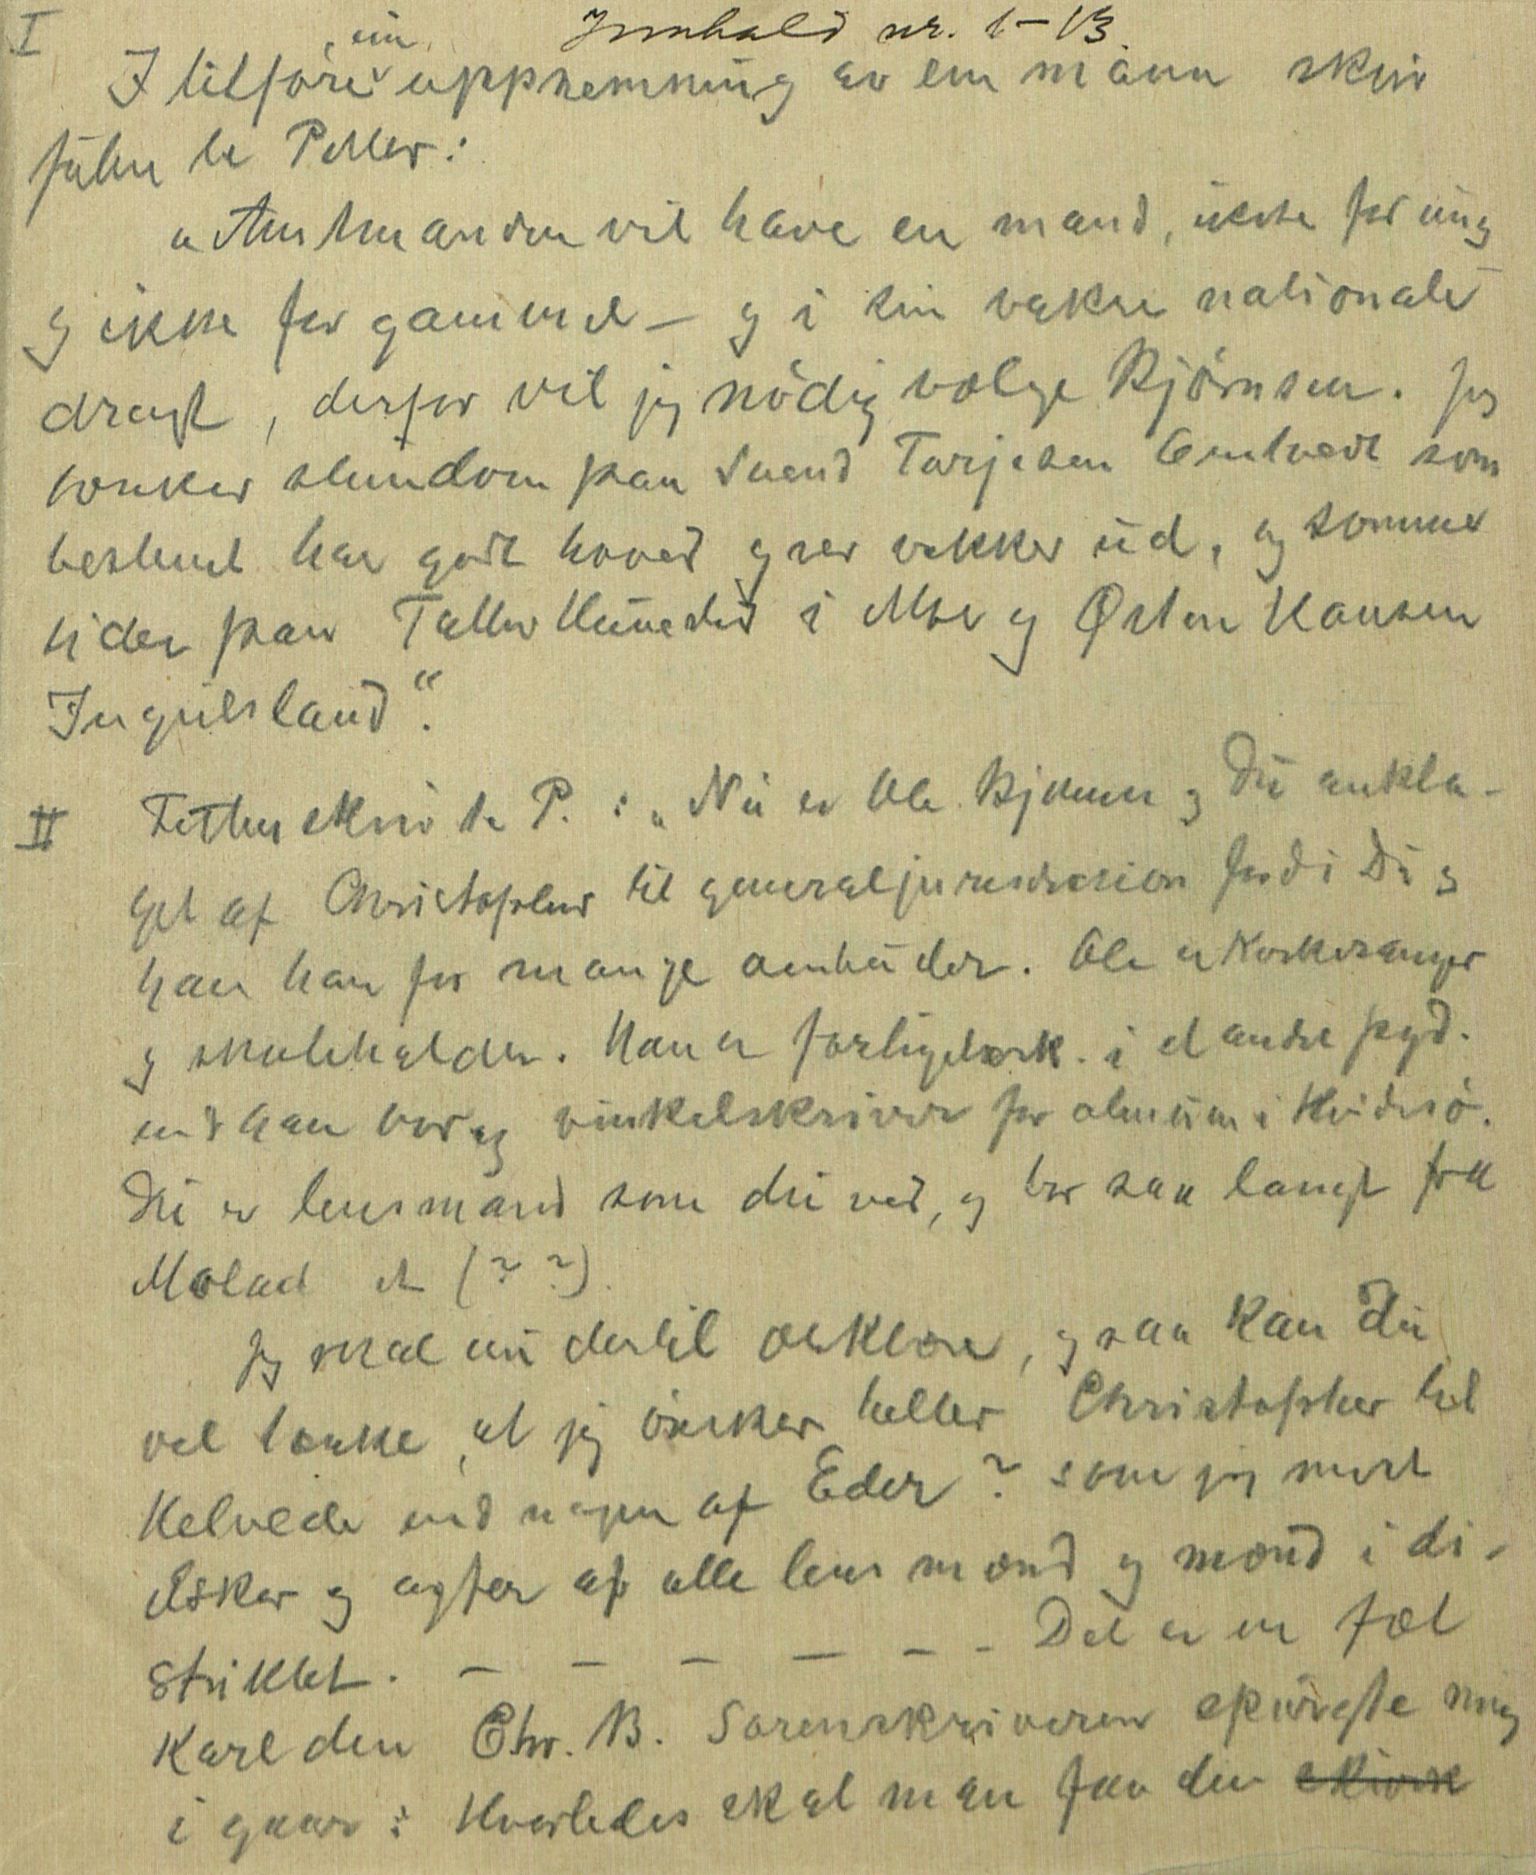 I
Innhald nr. 1-13.
ein
I tilføre uppnemning av ein mann skriv
futen te Petter:
"Amtmanden vil have en mand, ikke for ung
og ikke for gammel – og i sin vakre nationale
dragt, derfor vil jeg nödig vælge Bjørnsen. Jeg
tænker stundom paa Svend Tarjesen som
bestemt har godt hoved og ser vakker ud, og somme
tider paa i Moe og Østen Hansen
Ingulsland".
II Futen skriv te P.: "Nu er Ole Bjørnsen og Du ankla-
get af Christopher til fordi Du og
han har for mange ombuder. Ole er Kirkesanger
og skoleholder. Han er forligelsesk. i et andet pgd.
end han bor og vinkelskriver for almuen i Hvidesø.
Du er lensmand som du ved, og bor saa langt fra
Molad et (? ?).
Jeg skal nu dertil erklære, og saa kan Du
vel tænke, at jeg önsker heller Christopher til
Helvede end nogen af Eder? som jeg mest
elsker og agter af alle lensmænd og mænd i di-
striktet. – – – – – – Det er en fæl
Karl den Chr. B. Sorenskriveren spurgte mig
i gaar: Hvorledes skal man faa den